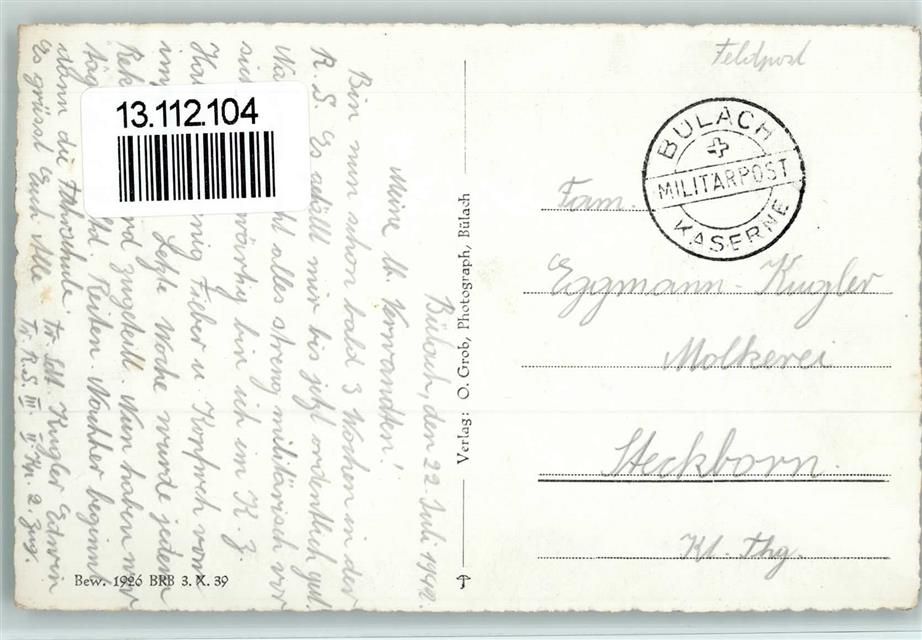 Bülach, den 22. Juli 1942.
Meine lb. Verwandten!
Bin nun schon bald 3 Wochen in der
R. S. Es gefällt mir bis jetzt ordentlich gut.
alles streng militärisch
bin ich im K. Z.
Fieber u. Kopfweh
Letzte Woche wurde jedem
zugeteilt. Nun haben wir
Reiten. Nachher beginnt
dann die Fahrschule.
Es grüsst Euch Alle Tr. Sdt. Kugler Edwin
Tr. R. S. III 2. Zug.
13.112.104
Bew. 1926 BRB 3. X. 39
Verlag: O. Grob, Photograph, Bülach
Feldpost
BÜLACH
MILITÄRPOST
KASERNE
Fam.
Eggmann-Kugler
Molkerei
Steckborn.
Kt. Thg.